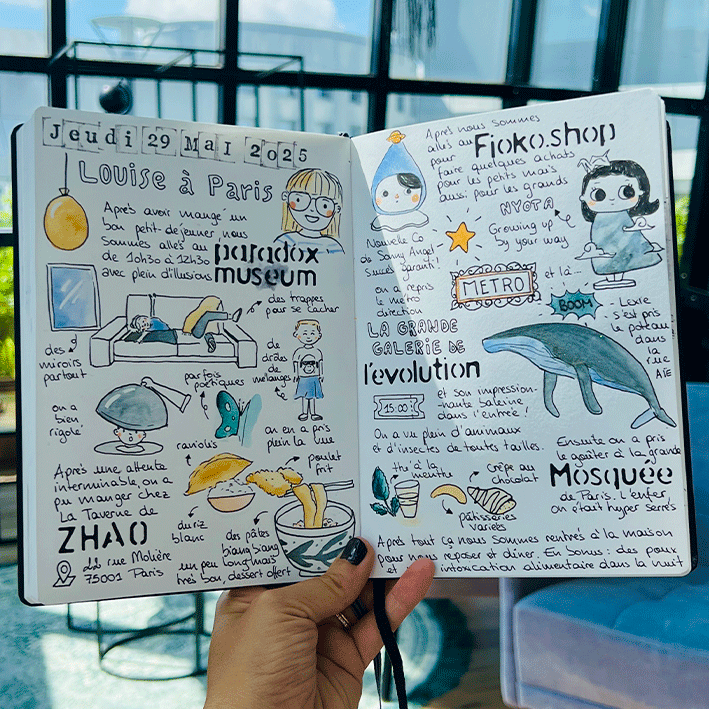 Jeudi 29 Mai 2025
Louise à Paris
Après avoir mangé un
bon petit-dejeuner, nous
sommes allés au paradox
de 10h30 à 12h30 museum
avec plein d'illusions
des trappes
pour se cacher
des
miroirs
partout
de
drôles
de
mélanges
on a
bien
rigolé
parfois
poétiques
on en a pris
plein la vue
Après une attente
interminable, on a
pu manger chez
La Taverne de
ZHAO
22 rue Molière
75001 Paris
raviolis
poulet
frit
du riz
blanc
des pâtes
biang biang
un peu long mais
très bon, dessert offert
Après nous sommes
allés au Fioko.shop
pour
faire quelques achats
pour les petits mais
aussi pour les grands
NYOTA
Growing up
by your way
Nouvelle Co
de Sonny Angel
succès garanti!
on a repris
le métro
direction
METRO
et là..
BOOM
Lexie
s'est pris
le poteau
dans
la
rue
AÏE
LA GRANDE
GALERIE DE
l'évolution
15:00
et son impression-
-nante baleine
dans l'entrée!
On a vu plein d'animaux
et d'insectes de toutes tailles.
Ensuite on a pris
le goûter à la grande
Mosquée
de Paris. L'enfer,
on était hyper serrés
thé à la
menthe
Crêpe au
chocolat
pâtisseries
variées
Après tout ça nous sommes rentrés à la maison
pour nous reposer et dîner. En bonus: des poux
et intoxication alimentaire dans la nuit